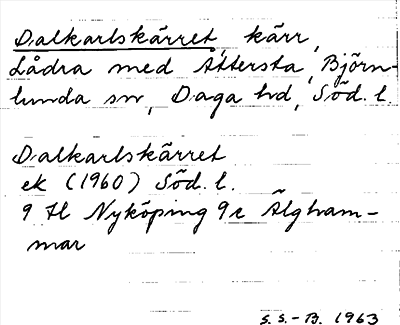 Dalkarlskärret, kärr,
Lådra med Åttersta, Björn-
lunda sn, Daga hd, Söd. l.
Dalkarlskärret
ek (1960) Söd. l.
9 H Nyköping 9c Älgham-
mar
S. S.-B. 1963